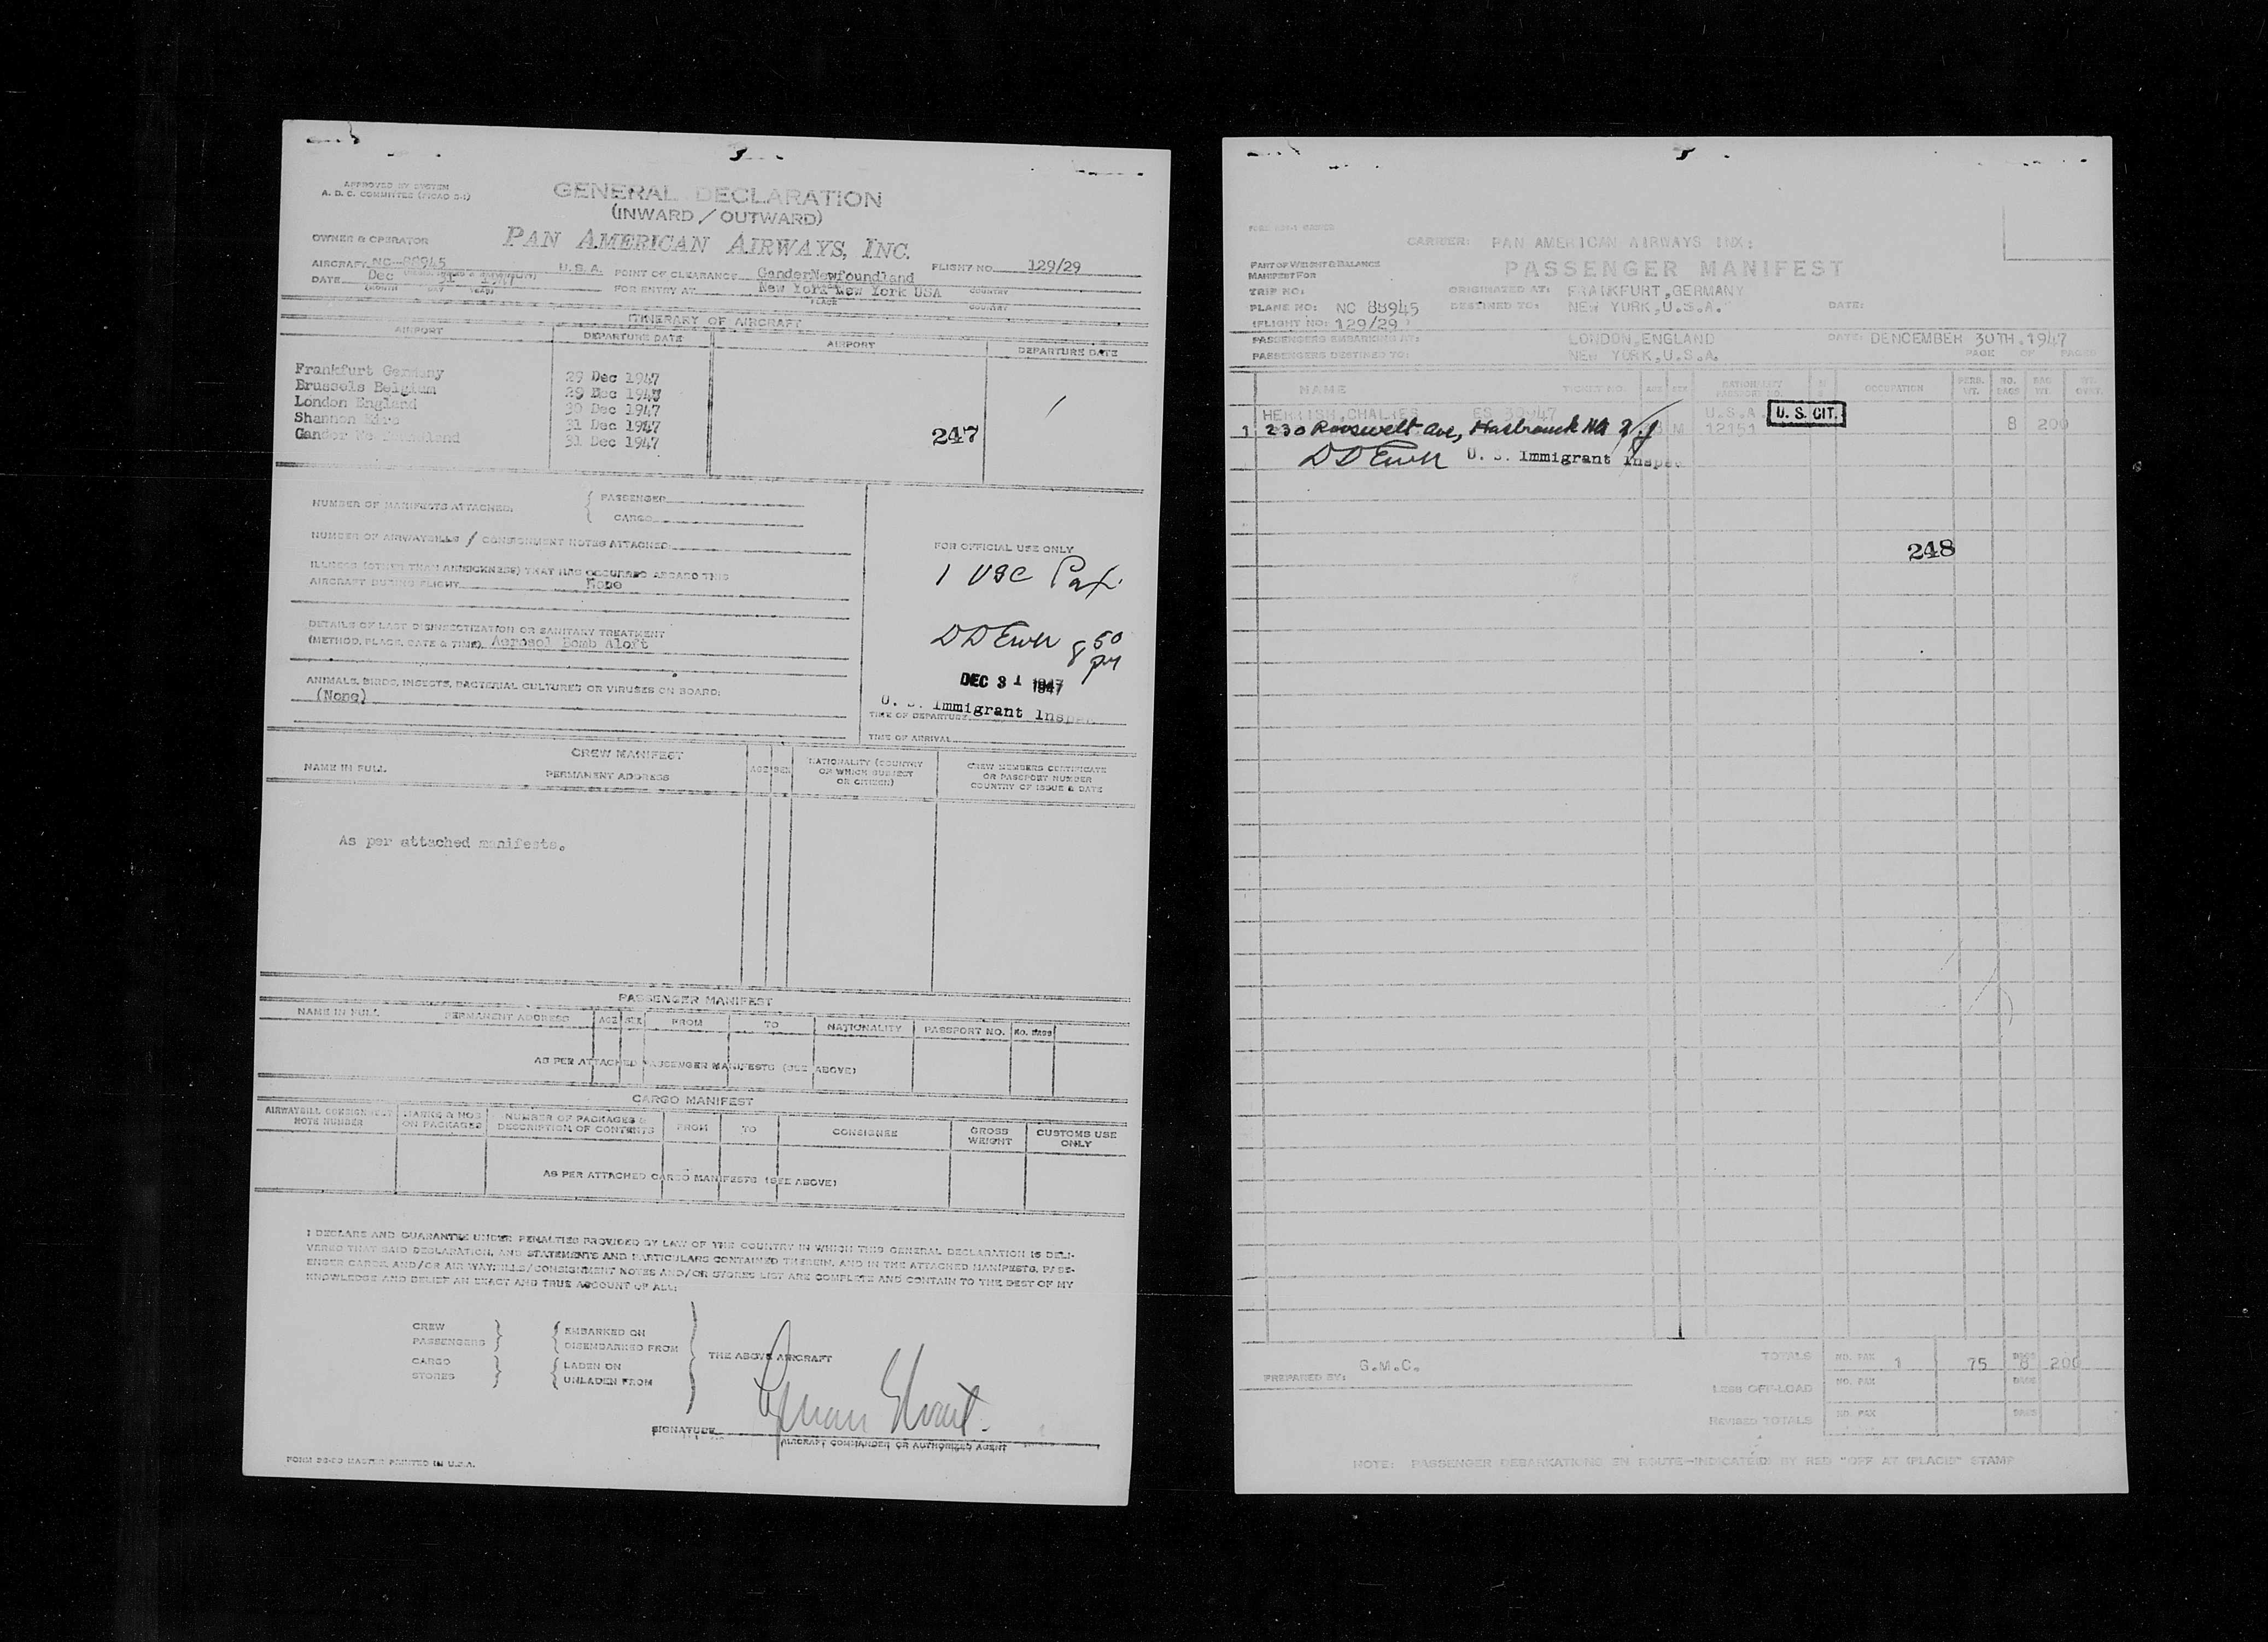 APPROVED BY SYSTEM
A. D. C. COMMITTEE (PICAO 2-1)
GENERAL DECLARATION
(INWARD / OUTWARD)
OWNER & OPERATOR PAN AMERICAN AIRWAYS, INC.
AIRCRAFT NC-88945 U.S.A. POINT OF CLEARANCE Gander Newfoundland FLIGHT NO. 129/29
DATE Dec 31 1947 FOR ENTRY AT New York New York USA COUNTRY
(MONTH DAY YEAR) PLACE COUNTRY
ITINERARY OF AIRCRAFT
AIRPORT DEPARTURE DATE AIRPORT DEPARTURE DATE
Frankfurt Germany 29 Dec 1947
Brussels Belgium 29 Dec 1947
London England 30 Dec 1947
Shannon Eire 31 Dec 1947
Gander Newfoundland 31 Dec 1947
247
NUMBER OF MANIFESTS ATTACHED: { PASSENGER
{ CARGO
NUMBER OF AIRWAYBILLS / CONSIGNMENT NOTES ATTACHED
ILLNESS (OTHER THAN AIRSICKNESS) THAT HAS OCCURRED ABOARD THIS
AIRCRAFT DURING FLIGHT None
DETAILS OF LAST DISINSECTIZATION OR SANITARY TREATMENT
(METHOD, PLACE, DATE & TIME) Aerosol Bomb Aloft
ANIMALS, BIRDS, INSECTS, BACTERIAL CULTURES OR VIRUSES ON BOARD:
(None)
FOR OFFICIAL USE ONLY
1 USC Pax
8 50 pm
DEC 31 1947
U. S. Immigrant Inspec
TIME OF DEPARTURE
TIME OF ARRIVAL
CREW MANIFEST
NAME IN FULL PERMANENT ADDRESS AGE SEX NATIONALITY (COUNTRY OF WHICH SUBJECT OR CITIZEN) CREW MEMBERS CERTIFICATE OR PASSPORT NUMBER COUNTRY OF ISSUE & DATE
As per attached manifests.
PASSENGER MANIFEST
NAME IN FULL PERMANENT ADDRESS AGE SEX FROM TO NATIONALITY PASSPORT NO. NO. BAGS
AS PER ATTACHED PASSENGER MANIFESTS (SEE ABOVE)
CARGO MANIFEST
AIRWAYBILL CONSIGNMENT NOTE NUMBER MARKS & NOS ON PACKAGES NUMBER OF PACKAGES & DESCRIPTION OF CONTENTS FROM TO CONSIGNEE GROSS WEIGHT CUSTOMS USE ONLY
AS PER ATTACHED CARGO MANIFESTS (SEE ABOVE)
I DECLARE AND GUARANTEE UNDER PENALTIES PROVIDED BY LAW OF THE COUNTRY IN WHICH THIS GENERAL DECLARATION IS DELI-
VERED THAT SAID DECLARATION, AND STATEMENTS AND PARTICULARS CONTAINED THEREIN, AND IN THE ATTACHED MANIFESTS, PASS-
ENGER CARDS, AND/OR AIR WAYBILLS/CONSIGNMENT NOTES AND/OR STORES LIST ARE COMPLETE AND CONTAIN TO THE BEST OF MY
KNOWLEDGE AND BELIEF AN EXACT AND TRUE ACCOUNT OF ALL:
CREW
PASSENGERS } { EMBARKED ON
DISEMBARKED FROM
THE ABOVE AIRCRAFT
CARGO
STORES } { LADEN ON
UNLADEN FROM
SIGNATURE
AIRCRAFT COMMANDER OR AUTHORIZED AGENT
MASTER PRINTED IN U.S.A.
CARRIER: PAN AMERICAN AIRWAYS INX:
PART OF WEIGHT & BALANCE
MANIFEST FOR PASSENGER MANIFEST
TRIP NO: ORIGINATED AT: FRANKFURT,GERMANY
PLANE NO: NC 88945 DESTINED TO: NEW YORK,U.S.A. DATE:
(FLIGHT NO: 129/29 )
PASSENGERS EMBARKING AT: LONDON,ENGLAND DATE: DENCEMBER 30TH.1947
PASSENGERS DESTINED TO: NEW YORK,U.S.A. PAGE OF PAGES
NAME TICKET NO. AGE SEX NATIONALITY PASSPORT NO OCCUPATION PERS. WT. NO. BAGS BAG WT. WT. OVWT.
HERTISH,CHALRES ES 39947 U.S.A. U. S. CIT.
1 230 Roosevelt Ave, Hasbrouck Hts N.J. M 12151 8 200
U. S. Immigrant Inspec
248
G.M.C.
PREPARED BY:
TOTALS NO. PAX 1 75 BAGS 8 200
LESS OFF-LOAD NO. PAX BAGS
REVISED TOTALS NO. PAX BAGS
NOTE: PASSENGER DEBARKATIONS EN ROUTE-INDICATE(D) BY RED "OFF AT (PLACE)" STAMP